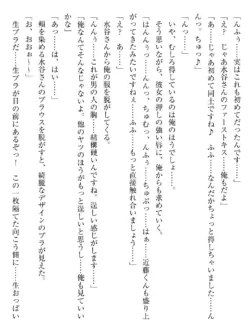 「んふぅ、実はこれも初めてだったんです……」
「え？　じゃあ水谷さんのファーストキス……俺もだよ」
「じゃあ初めて同士ですね♪　ふふっ……なんだかちょっと得しちゃいました……ん
んっ、ちゅっ♪」
いや、むしろ得しているのは俺のほうでしょ……。
そう思いながら、彼女の押しの強い唇に、俺からも求めていく。
「んはんんぅっ……んっ、ちゅむっ、んふぅ……ちゅぷっ……はぁ　近藤くんも盛り上
がってきたみたいですねぇ……ふふ……もっと直接触れ合いましょう……」
「え？　あっ……」
水谷さんから俺の服を脱がしてくる。
「んんぅ……これが男の人の胸……結構硬いんですね。逞しい感じがします……」
「俺なんてそんなじゃないよ。他のヤツのほうがもっと逞しいと思うし……俺も脱がしていい
かな」
「あっ……は、はい……」
頬を染める水谷さんのブラウスを脱がすと、綺麗なデザインのブラが見えた。
お、おおぉ～！
生ブラだ……生ブラが目の前にあるぞっ！　この一枚隔てた向こう側に……生おっぱい